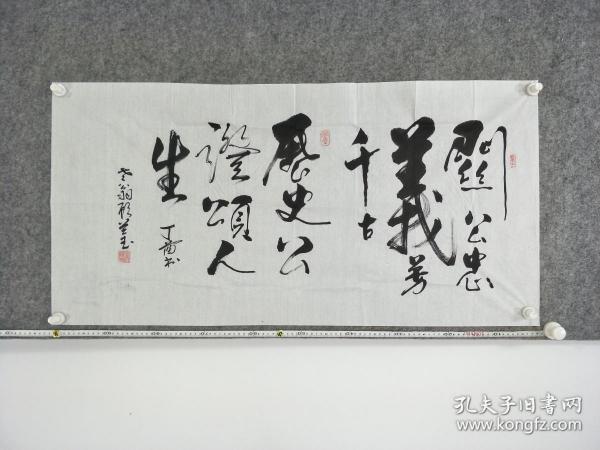 關公忠
義萬
千古
歷史公
證頌人
生
丁酉
老翁
孔夫子旧书网
www.kongfz.com